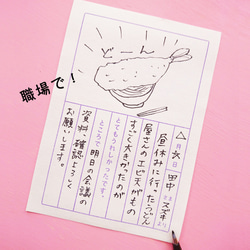 職場で！
どーん
△月×日 田中さま
スズキより
昼休みに行ったうどん
屋さんのエビ天がもの
すごく大きかったのが
とてもうれしかったです。
ところで明日の会議の
資料、確認よろしく
お願いします。